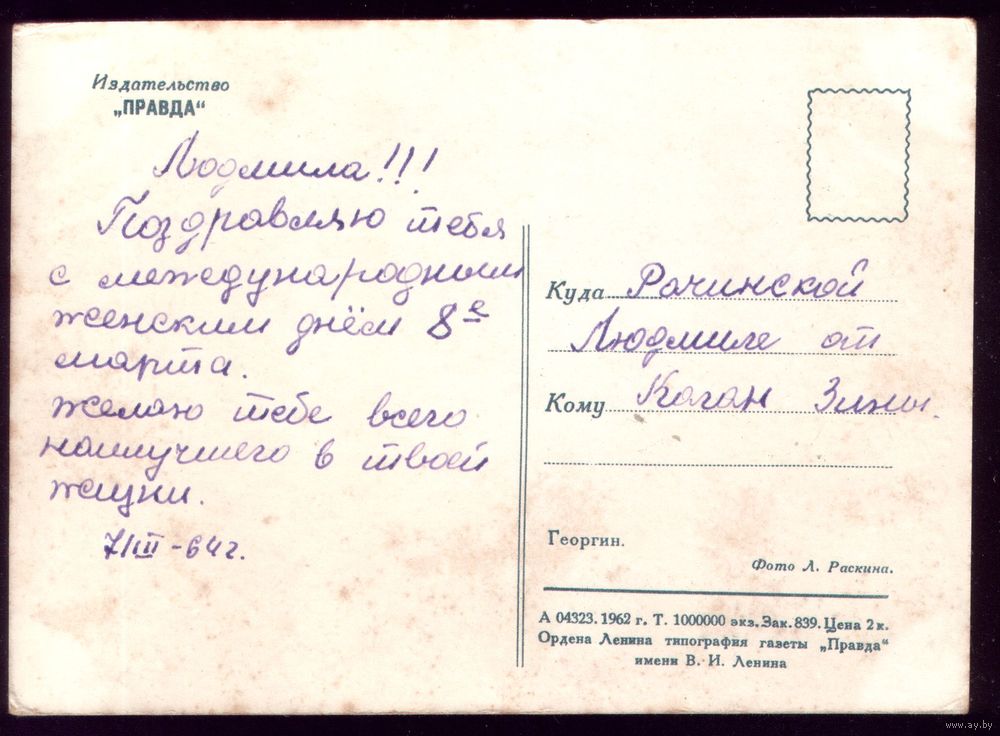 Издательство
„ПРАВДА“
Людмила!!!
Поздравляю тебя
с международным
женским днём 8е
марта.
желаю тебе всего
наилучшего в твоей
жизни.
7/III-64г.
Куда Рачинской
Людмиле от
Кому Коган Зины.
Георгин.
Фото Л. Раскина.
А 04323. 1962 г. Т. 1000000 экз. Зак. 839. Цена 2 к.
Ордена Ленина типография газеты „Правда“
имени В. И. Ленина
www.ay.by